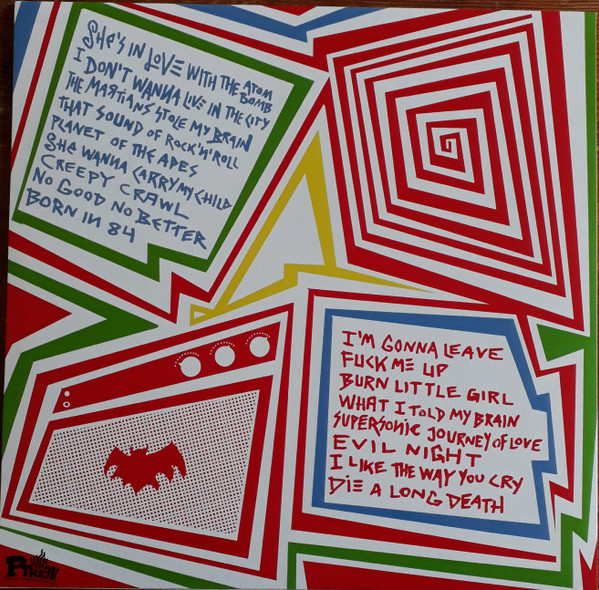 SHE'S IN LOVE WITH THE ATOM BOMB
I DON'T WANNA LIVE IN THE CITY
THE MARTIANS STOLE MY BRAIN
THAT SOUND OF ROCK'N'ROLL
PLANET OF THE APES
SHE WANNA CARRY MY CHILD
CREEPY CRAWL
NO GOOD NO BETTER
BORN IN 84
I'M GONNA LEAVE
FUCK ME UP
BURN LITTLE GIRL
WHAT I TOLD MY BRAIN
SUPERSONIC JOURNEY OF LOVE
EVIL NIGHT
I LIKE THE WAY YOU CRY
DIE A LONG DEATH